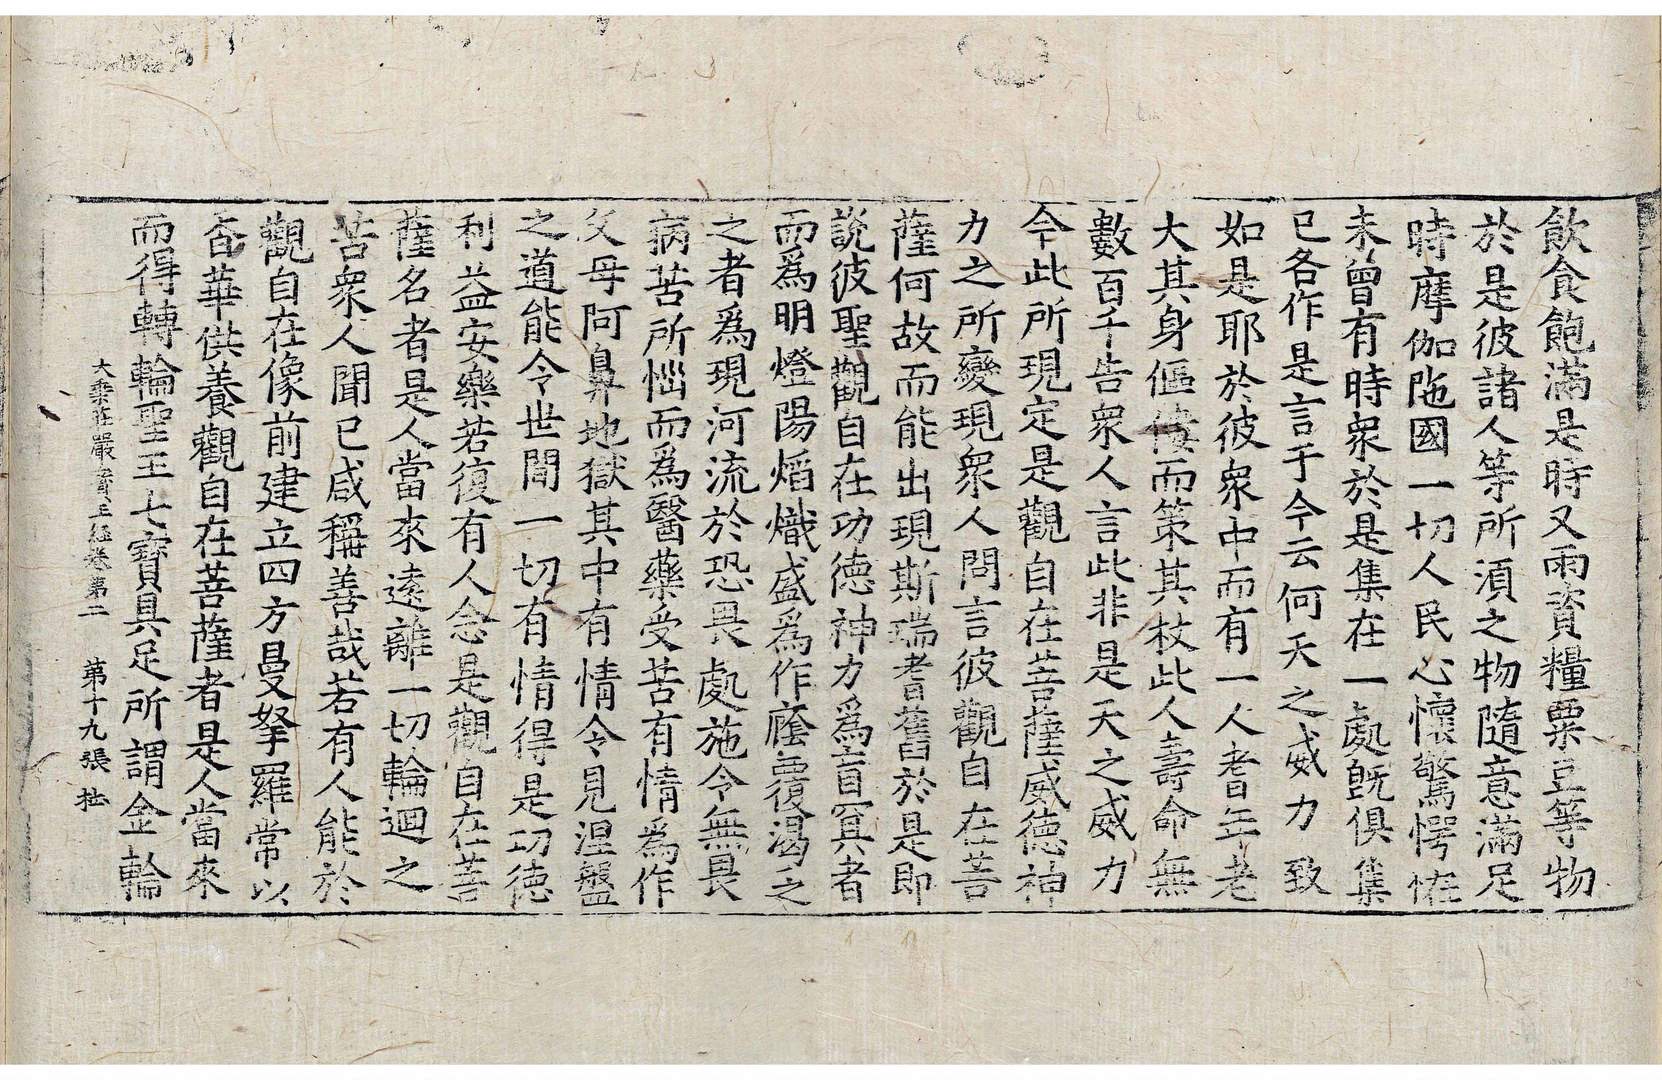 飲食飽滿是時又雨資糧粟豆等物
於是彼諸人等所須之物隨意滿足
時摩伽陁國一切人民心懷驚愕恠
未曾有時衆於是集在一處旣俱集
已各作是言于今云何天之威力致
如是耶於彼衆中而有一人耆年老
大其身傴僂而策其杖此人壽命無
數百千告衆人言此非是天之威力
今此所現定是觀自在菩薩威德神
力之所變現衆人問言彼觀自在菩
薩何故而能出現斯瑞耆舊於是即
說彼聖觀自在功德神力爲盲冥者
而爲明燈陽焰熾盛爲作廕覆渴乏
之者爲現河流於恐畏處施令無畏
病苦所惱而爲醫藥受苦有情爲作
父母阿鼻地獄其中有情令見涅盤
之道能令世間一切有情得是功德
利益安樂若復有人念是觀自在菩
薩名者是人當來遠離一切輪迴之
苦衆人聞已咸稱善哉若有人能於
觀自在像前建立四方曼拏羅常以
香華供養觀自在菩薩者是人當來
而得轉輪聖王七寶具足所謂金輪
大乘莊嚴寶王經卷第二 第十九張 松